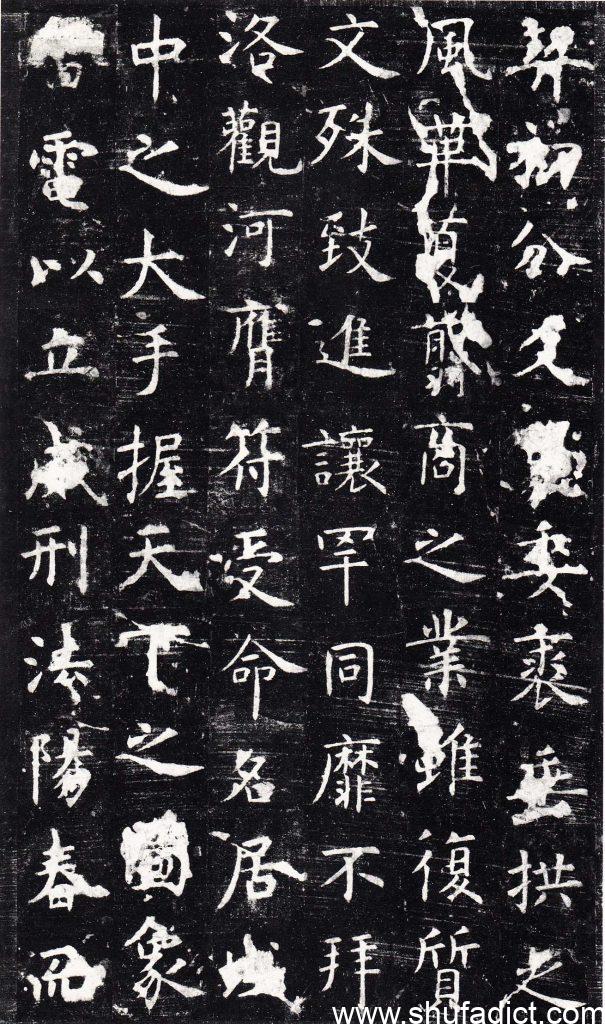 契初分爻委裘垂拱之
風革夏翦商之業雖復質
文殊致進讓罕同靡不拜
洛觀河膺符受命名居域
中之大手握天下之圖象
雷電以立威刑法陽春而
www.shufadict.com